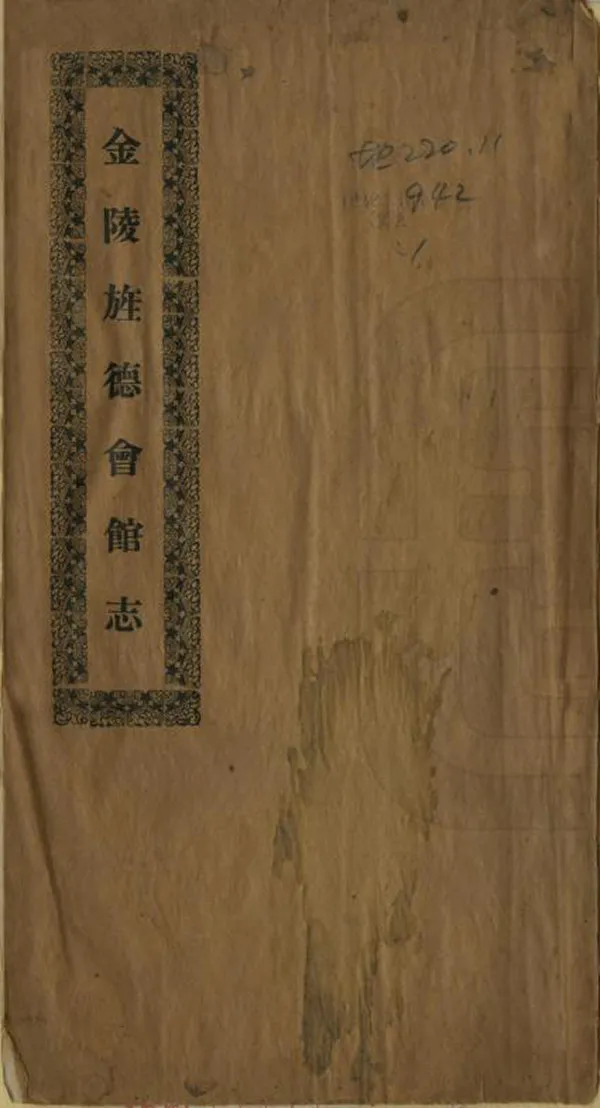 金陵旌德會館志
地220.11
942